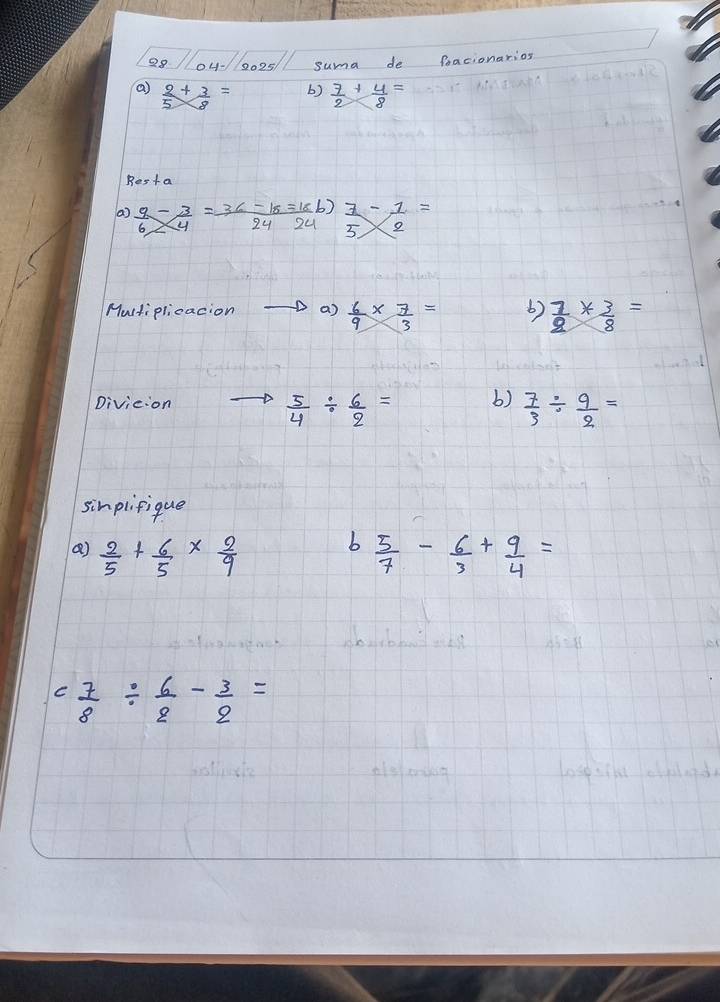 28 / 04- / 2025 // suma de foacionarios
a) 2/5 + 3/8 = b) 7/2 + 4/8 =
Resta
a) 9/6 - 3/4 = 36 - 18/24 = 18/24 b) 7/5 - 1/2 =
Multiplicacion → a) 6/9 x 7/3 = b) 7/2 x 3/8 =
Divicion → 5/4 ÷ 6/2 = b) 7/3 ÷ 9/2 =
sinplifique
a) 2/5 + 6/5 x 2/9 b 5/7 - 6/3 + 9/4 =
c 7/8 ÷ 6/2 - 3/2 =